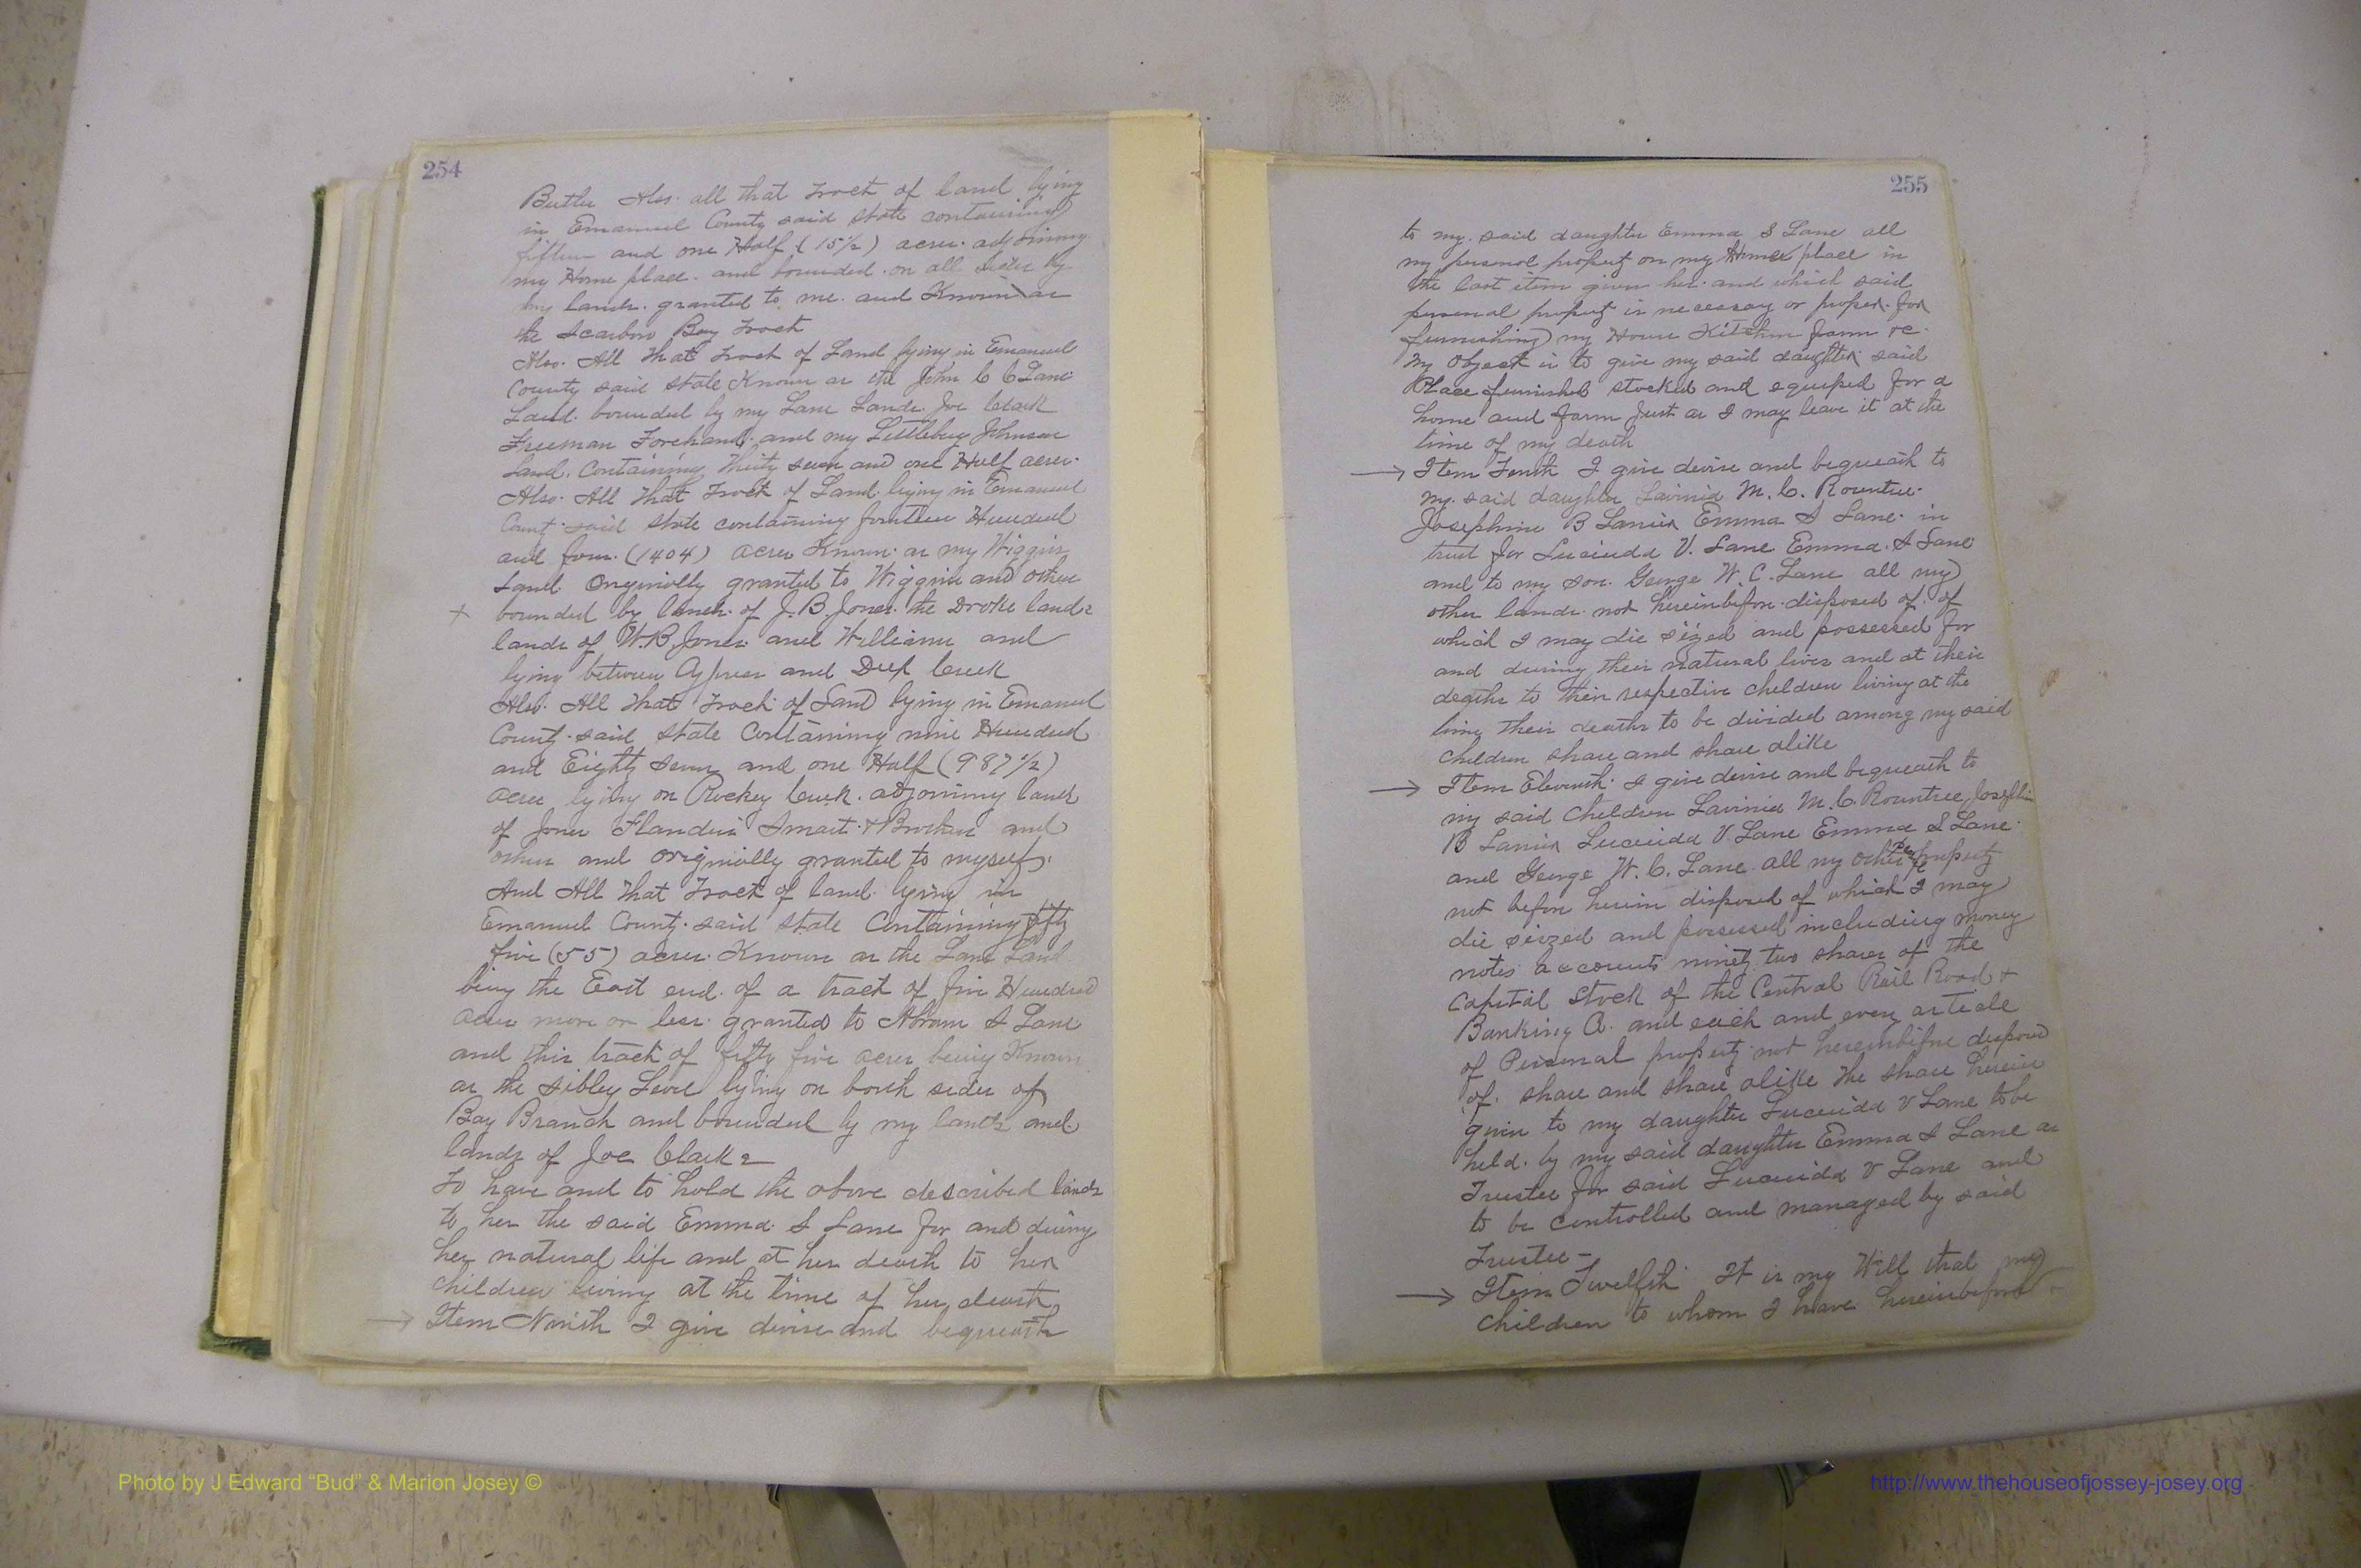 254
Butler Also all that tract of land lying
in Emanuel County said state containing
fifteen and one Half (15½) acres adjoining
my Home place and bounded on all sides by
my lands granted to me and Known as
the Scarboro Bay Tract
Also All that tract of Land lying in Emanuel
County said state Known as the John C C Lane
Land bounded by my Lane Lands Joe Clark
Freeman Forehand and my Littleberry Johnson
Land, Containing thirty seven and one Half acres
Also All that tract of Land lying in Emanuel
County said state containing fourteen Hundred
and four (1404) acres Known as my Wiggins
Land Originally granted to Wiggins and others
bounded by lands of J. B Jones the Drake lands
lands of W. B. Jones and Williams and
lying between Cypress and Deep Creek
Also All that tract of Land lying in Emanuel
County said state Containing nine Hundred
and Eighty Seven and one Half (987½)
acres lying on Rockey Creek adjoining lands
of Jones Flanders Smart & and
others and originally granted to myself
And All that tract of land lying in
Emanuel County said state Containing fifty
five (55) acres Known as the Lane Land
being the East end of a tract of five Hundred
acres more or less granted to Abram S Lane
and this tract of fifty five acres being Known
as the Sibley lying on both sides of
Bay Branch and bounded by my lands and
lands of Joe Clarks
To have and to hold the above described lands
to her the said Emma S Lane for and during
her natural life and at her death to her
children living at the time of her death
Item Ninth I give devise and bequeath
255
to my said daughter Emma S Lane all
my personal property on my Home place in
the last item given her and which said
personal property is necessary or proper for
furnishing my House Kitchen farm &c
my Object is to give my said daughter said
Place furnished stocked and equiped for a
home and farm just as I may leave it at the
time of my death
Item Tenth I give devise and bequeath to
my said daughter Lavinia M. C. Rountree
Josephine B Lanier Emma S Lane in
trust for Lucinda V. Lane Emma S Lane
and to my son George W. C. Lane all my
other lands not hereinbefore disposed of of
which I may die sized and possessed for
and during their natural lives and at their
deaths to their respective children living at the
time their deaths to be divided among my said
children share and share alike
Item Eleventh I give devise and bequeath to
my said children Lavinia M. C. Rountree
B Lanier Lucinda V Lane Emma S Lane
and George W. C. Lane all my other property
not before herein disposed of which I may
die seized and possessed including money
notes accounts ninety two shares of the
Capital Stock of the Central Rail Road &
Banking Co. and each and every article
of Personal property not hereinbefore disposed
of share and share alike the share herein
given to my daughter Lucinda V Lane to be
held by my said daughter Emma S Lane as
Trustee for said Lucinda V Lane and
to be Controlled and managed by said
Trustee
Item Twelfth It is my Will that my
Children to whom I have hereinbefore
Photo by J Edward “Bud” & Marion Josey ©
http://www.thehouseofjossey-josey.org